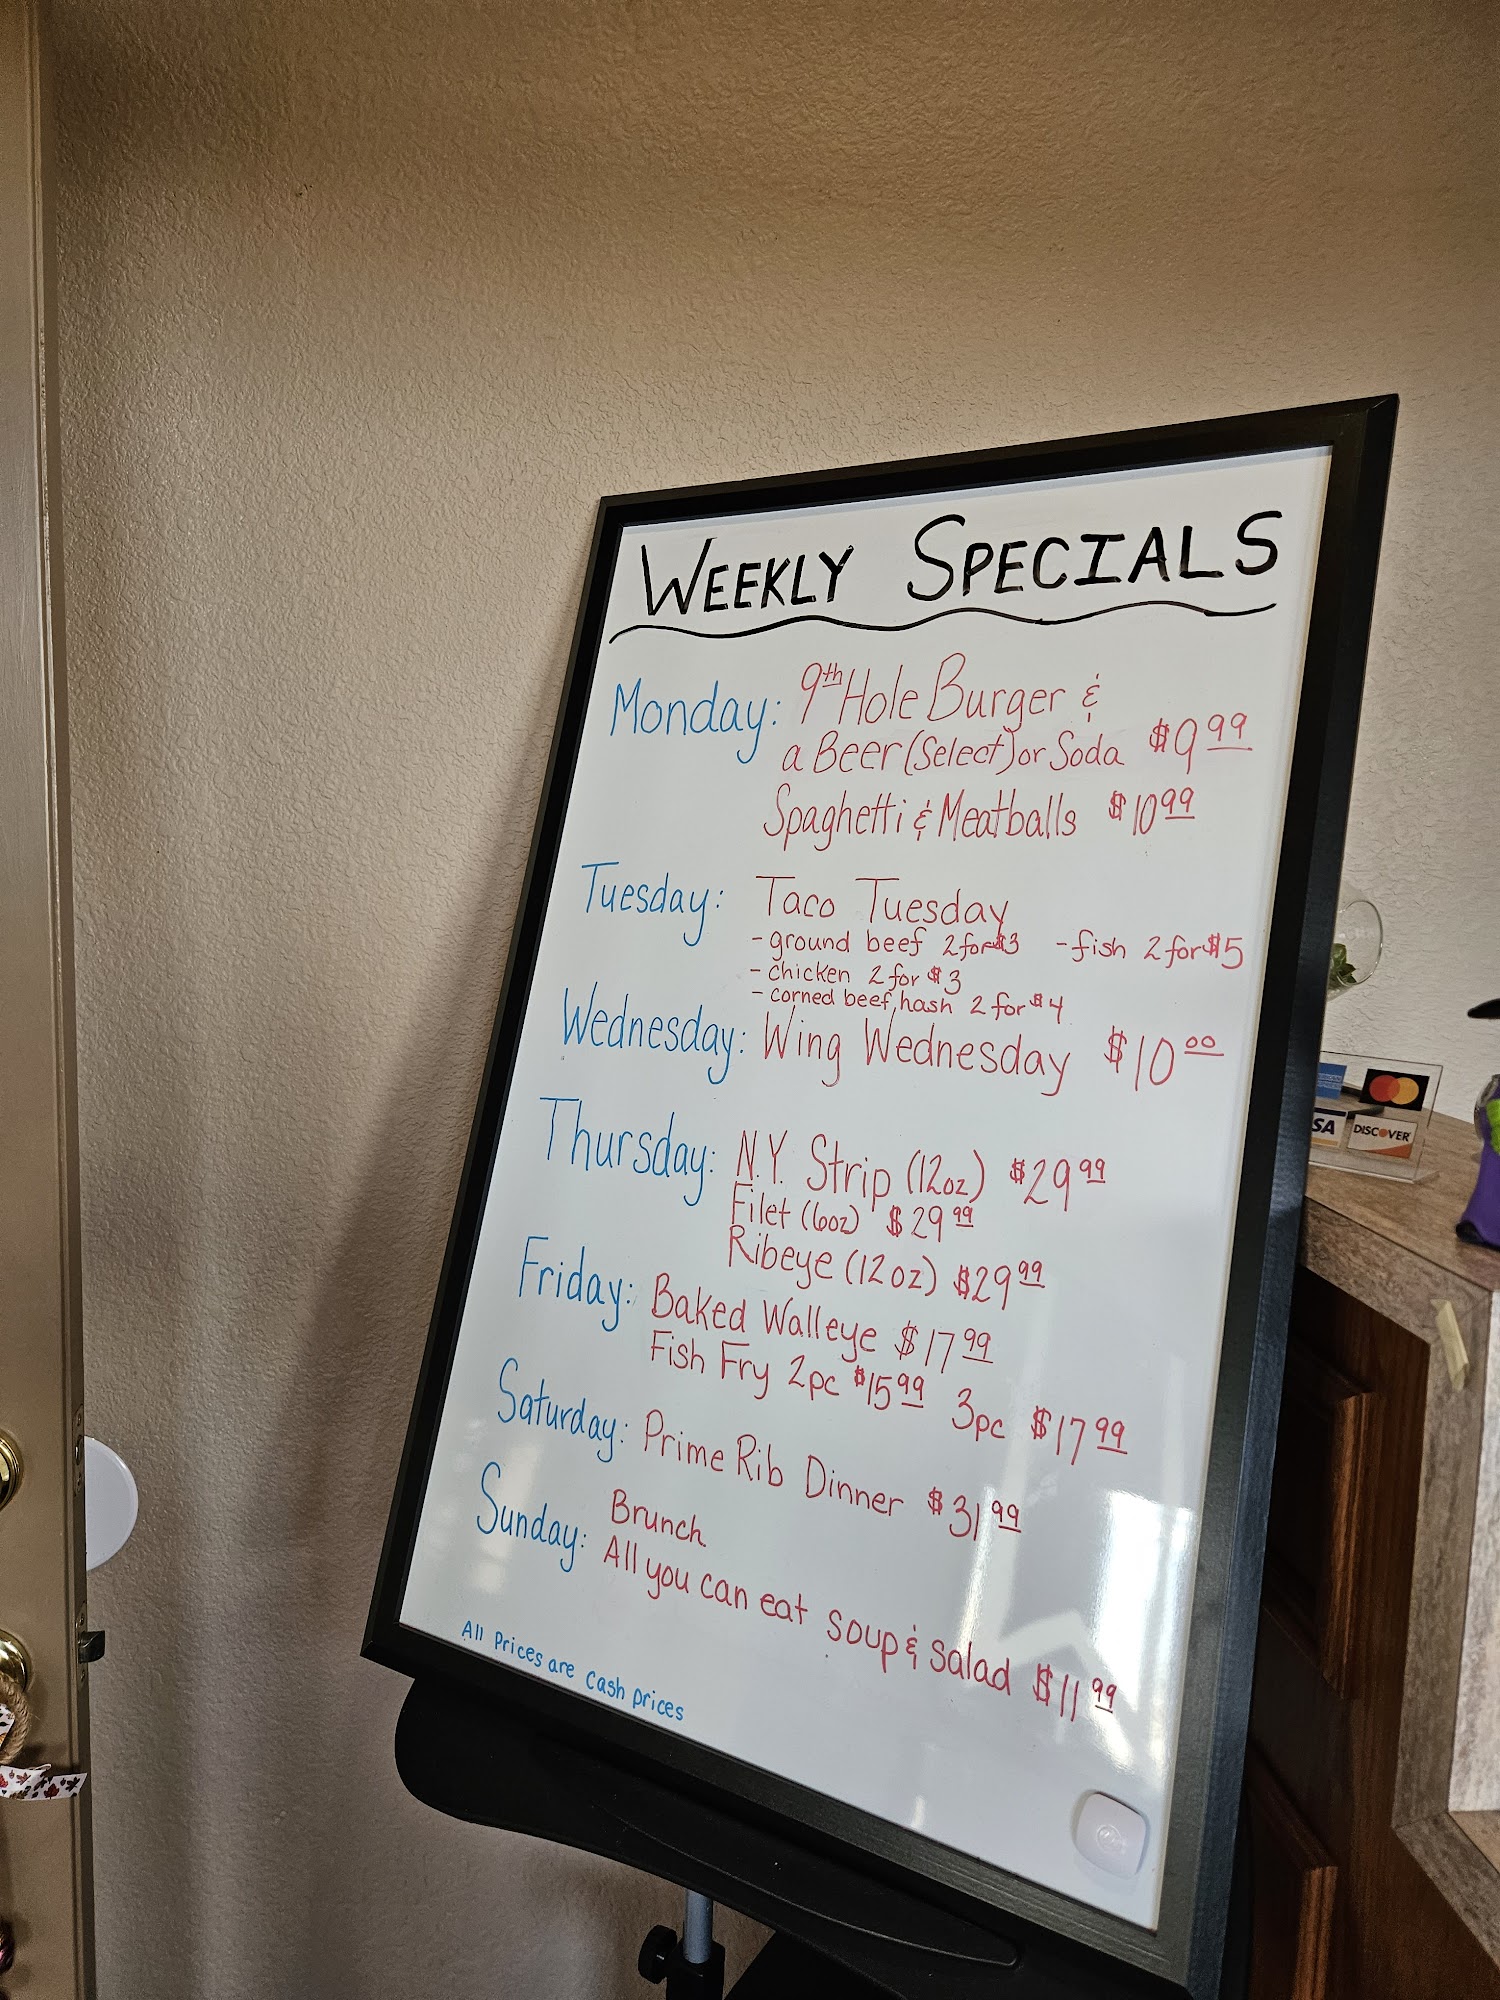 WEEKLY SPECIALS
Monday: 9th Hole Burger &
a Beer (Select) or Soda $9 99
Spaghetti & Meatballs $10 99
Tuesday: Taco Tuesday
- ground beef 2 for $3 - fish 2 for $5
- chicken 2 for $3
- corned beef hash 2 for $4
Wednesday: Wing Wednesday $10 00
Thursday: N.Y. Strip (12oz) $29 99
Filet (6oz) $29 99
Ribeye (12oz) $29 99
Friday: Baked Walleye $17 99
Fish Fry 2pc $15 99 3pc $17 99
Saturday: Prime Rib Dinner $31 99
Sunday: Brunch
All you can eat soup & salad $11 99
All Prices are Cash prices
SA DISCOVER